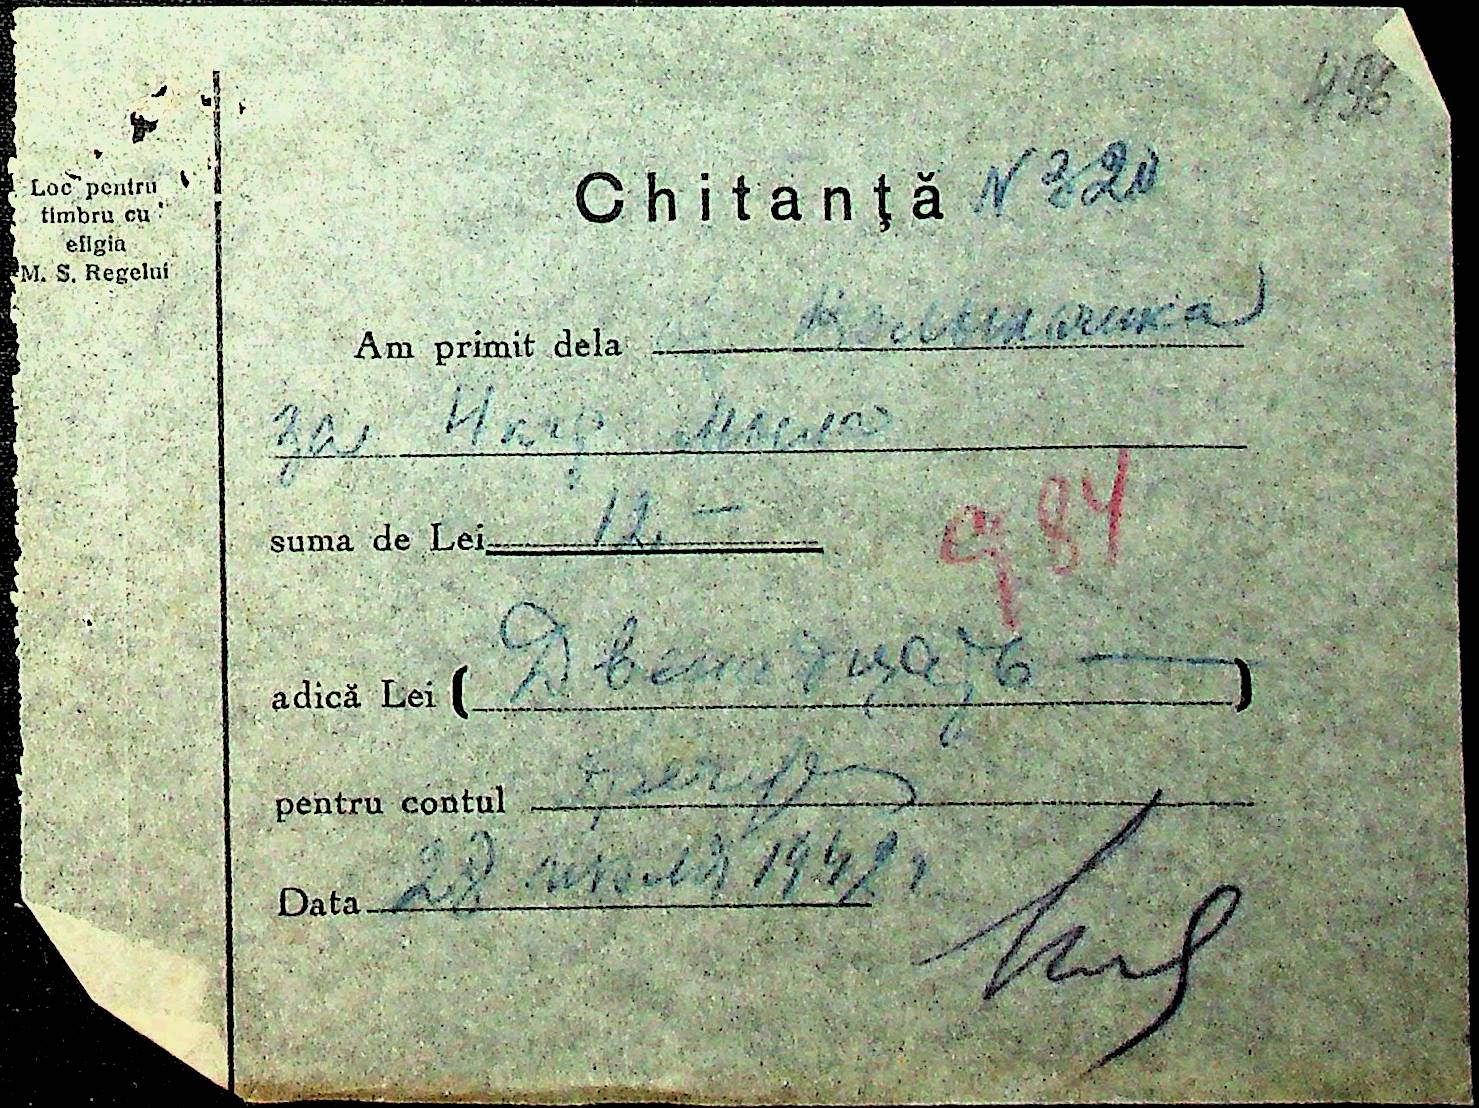 496
Loc pentru
timbru cu
efigia
M. S. Regelui
Chitanță N 320
Am primit dela
за
suma de Lei 12. –
984
adică Lei (Двенадцать —)
pentru contul
Data 28 1942 г.